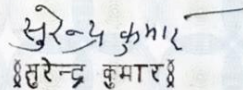 सुरेन्द्र कुमार
(सुरेन्द्र कुमार)